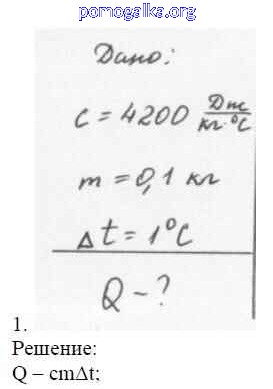 pomogalka.org
Дано:
c = 4200 Дж/кг·°C
m = 0,1 кг
Δt = 1°C
Q - ?
1.
Решение:
Q – cmΔt;